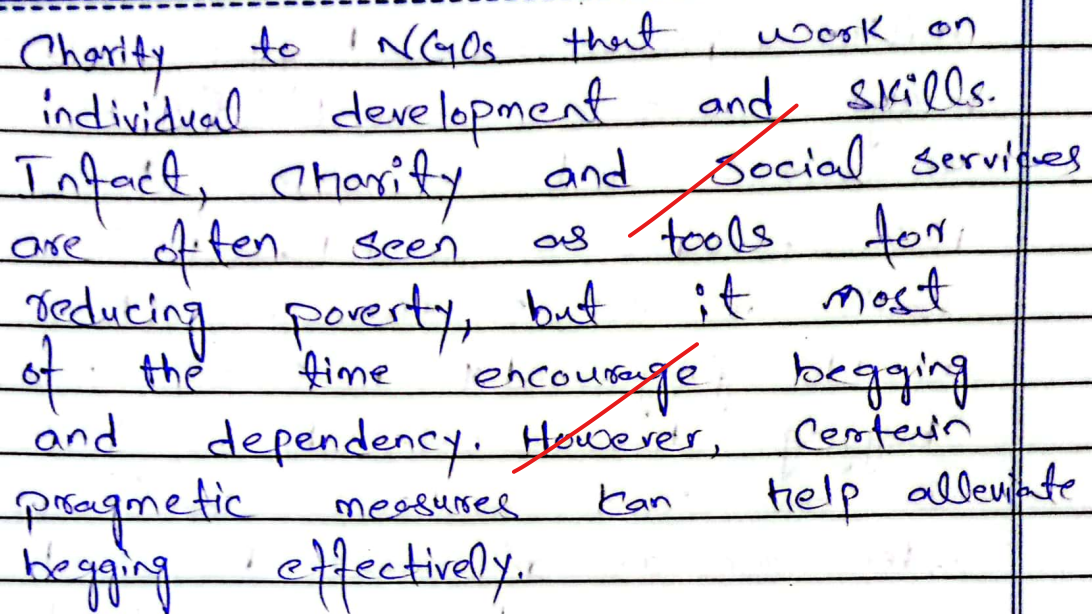 Charity to NGOs that work on
individual development and skills.
Infact, Charity and social services
are often seen as tools for
reducing poverty, but it most
of the time encourage begging
and dependency. However, Certain
pragmetic measures can help alleviate
begging effectively.